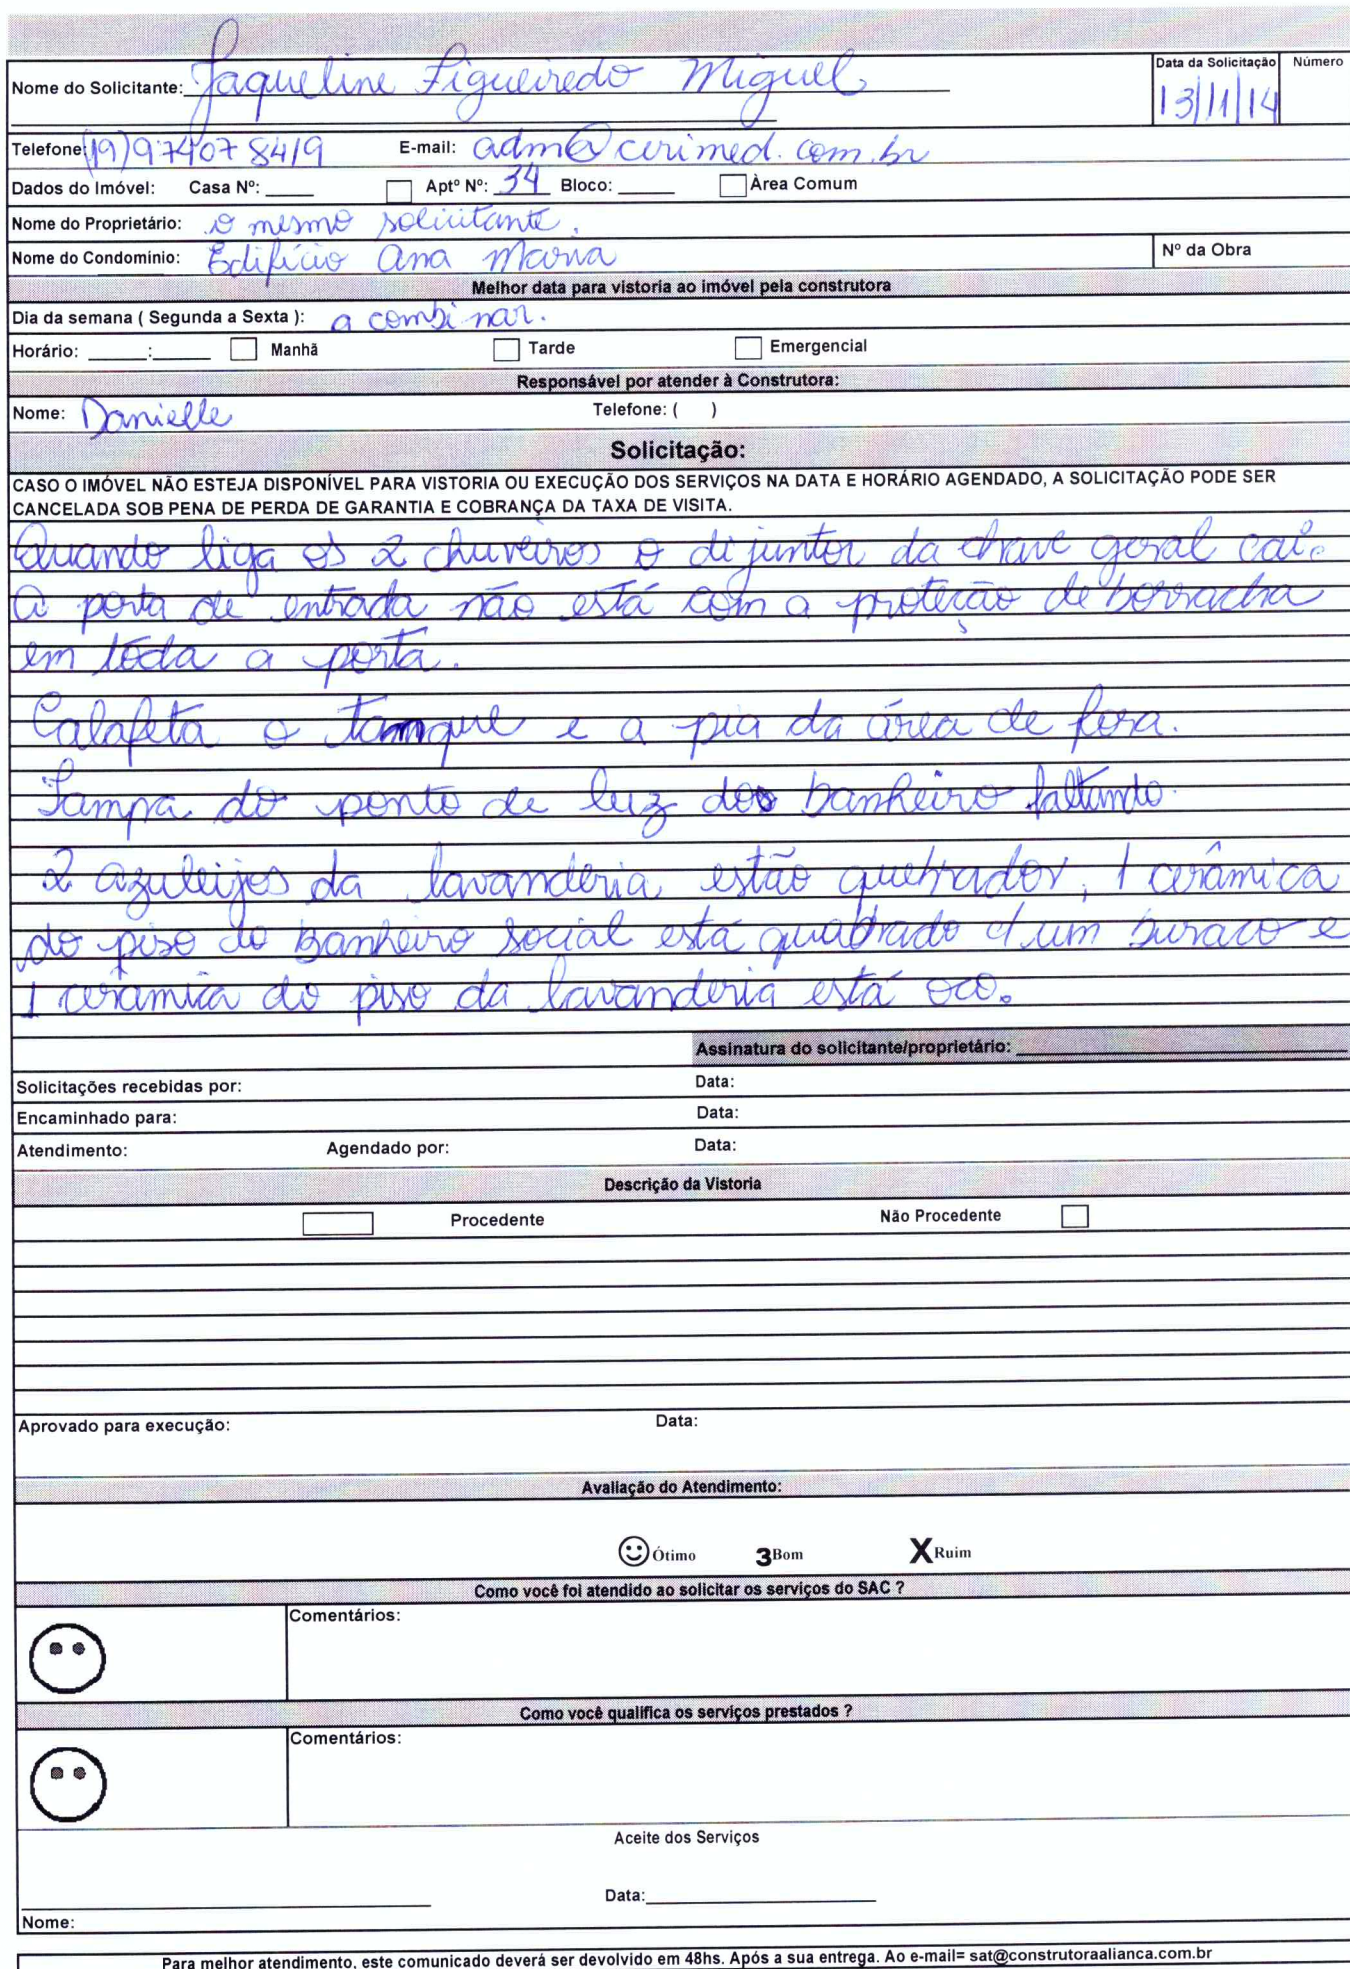 Nome do Solicitante: Jaqueline Figueiredo Miguel
Data da Solicitação Número
13/11/14
Telefone: (19) 97407 8419 E-mail: adm@cerimed.com.br
Dados do Imóvel: Casa Nº: _____ Aptº Nº: 34 Bloco: ______ Àrea Comum
Nome do Proprietário: o mesmo solicitante.
Nome do Condomínio: Edifício Ana Maria Nº da Obra
Melhor data para vistoria ao imóvel pela construtora
Dia da semana ( Segunda a Sexta ): a combinar.
Horário: ______:______ Manhã Tarde Emergencial
Responsável por atender à Construtora:
Nome: Danielle Telefone: ( )
Solicitação:
CASO O IMÓVEL NÃO ESTEJA DISPONÍVEL PARA VISTORIA OU EXECUÇÃO DOS SERVIÇOS NA DATA E HORÁRIO AGENDADO, A SOLICITAÇÃO PODE SER
CANCELADA SOB PENA DE PERDA DE GARANTIA E COBRANÇA DA TAXA DE VISITA.
Quando liga os 2 chuveiros o dijuntor da chave geral cai.
A porta de entrada não está com a proteção de borracha
em toda a porta.
Calafeta o tanque e a pia da área de fora.
Tampa do ponto de luz do banheiro faltando.
2 azuleijos da lavanderia estão quebrador, 1 cerâmica
do piso do banheiro social está quabrado c/ um buraco e
1 cerâmica do piso da lavanderia está oco.
Assinatura do solicitante/proprietário:
Solicitações recebidas por: Data:
Encaminhado para: Data:
Atendimento: Agendado por: Data:
Descrição da Vistoria
Procedente Não Procedente
Aprovado para execução: Data:
Avaliação do Atendimento:
Ótimo 3 Bom X Ruim
Como você foi atendido ao solicitar os serviços do SAC ?
Comentários:
Como você qualifica os serviços prestados ?
Comentários:
Aceite dos Serviços
Data:
Nome:
Para melhor atendimento, este comunicado deverá ser devolvido em 48hs. Após a sua entrega. Ao e-mail= sat@construtoraalianca.com.br